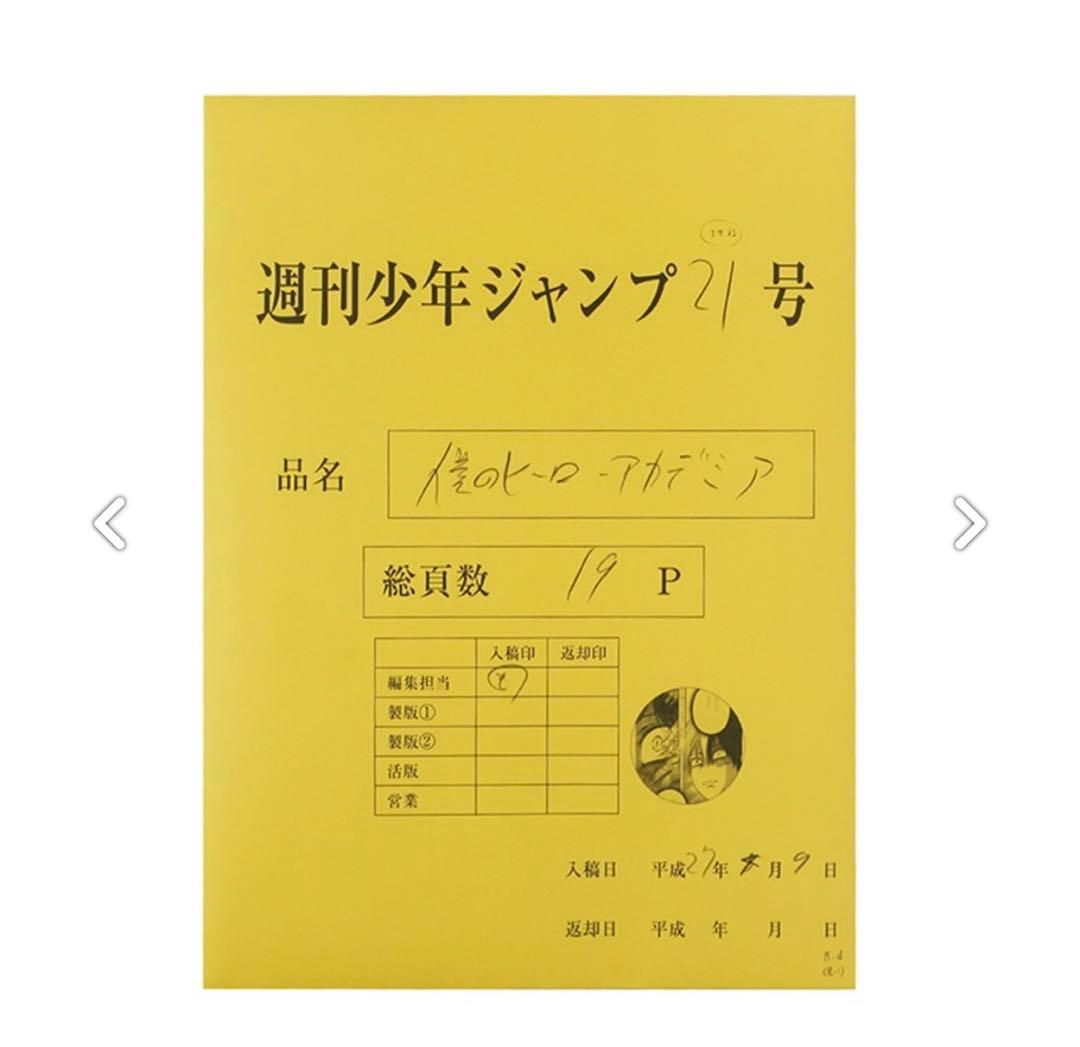 週刊少年ジャンプ21号
品名 僕のヒーローアカデミア
総頁数 19 P
入稿印 返却印
編集担当
製版①
製版②
活版
営業
入稿日 平成27年 月9日
返却日 平成 年 月 日